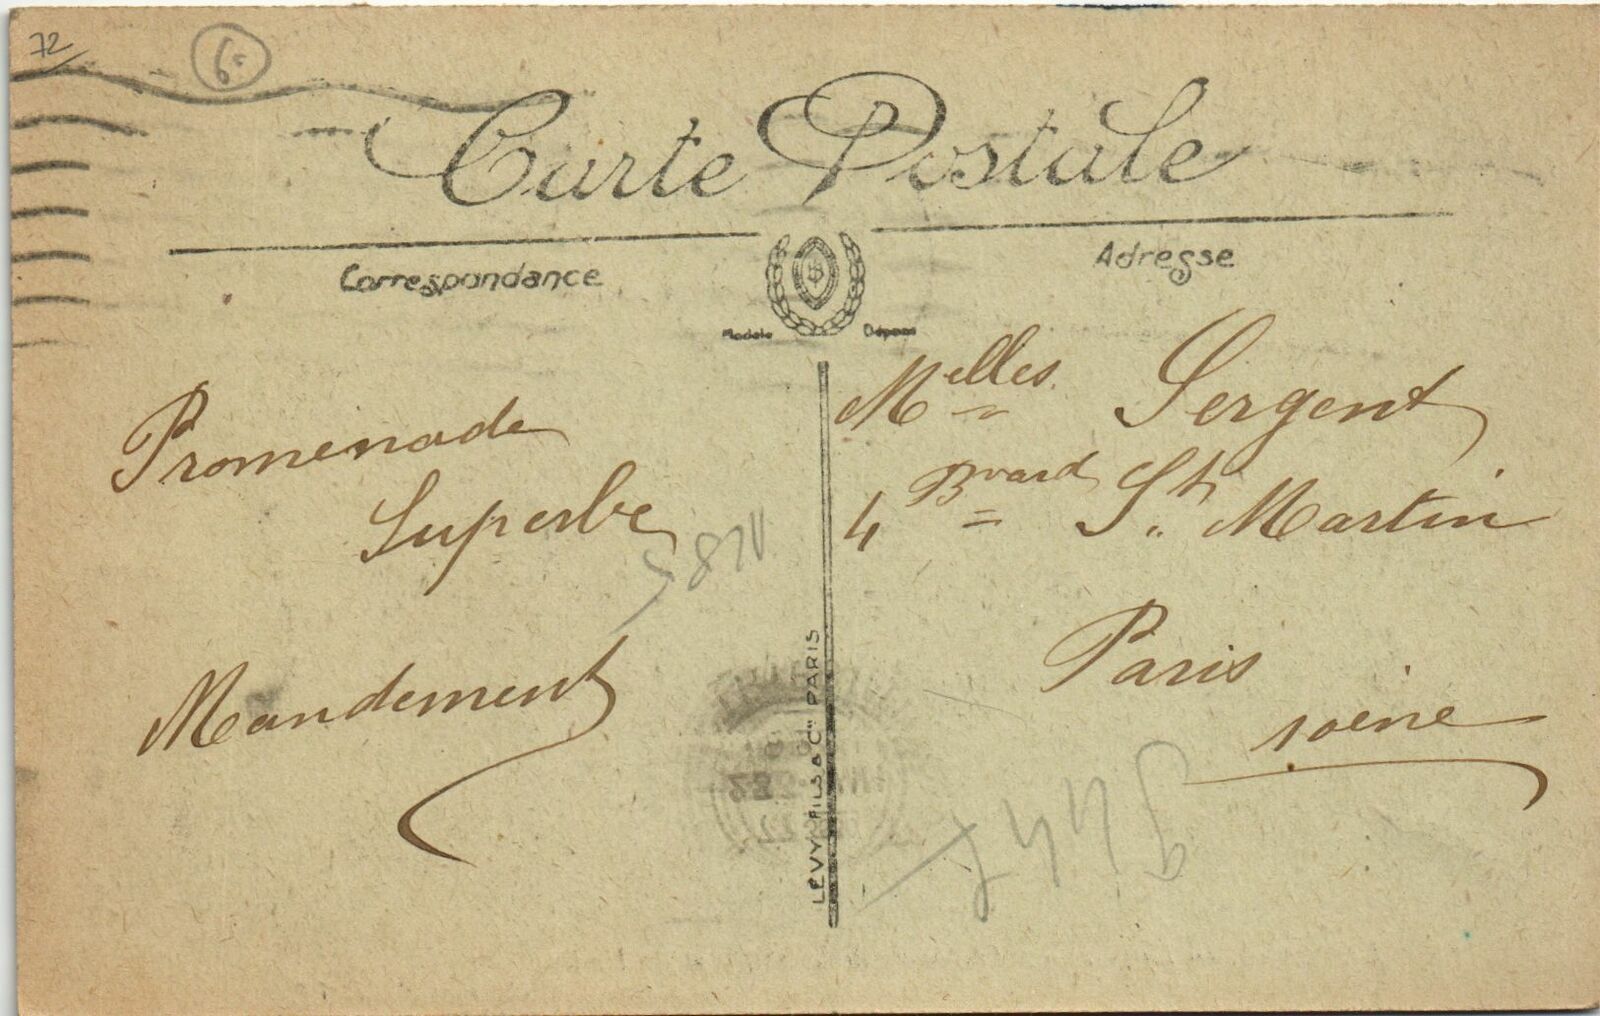 72
6
Carte Postale
Correspondance
Adresse
Modèle Déposé
Promenade
Superbe
Mandement
Melles. Sergent
4 Bvard St. Martin
Paris
Seine
LEVY FILS & Cie PARIS